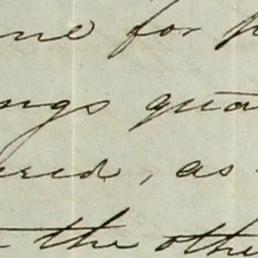 ne for p
ngs qua
ered, as
the othe